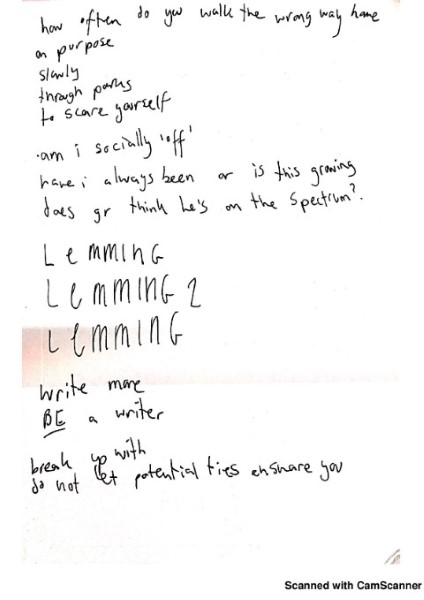 how often do you walk the wrong way home
on purpose
slowly
through parks
to scare yourself
am i socially 'off'
have i always been or is this growing
does gr think he's on the spectrum?
LeMMING
LeMMING 2
LeMMING
write more
BE a writer
break up with
do not let potential ties ensnare you
Scanned with CamScanner